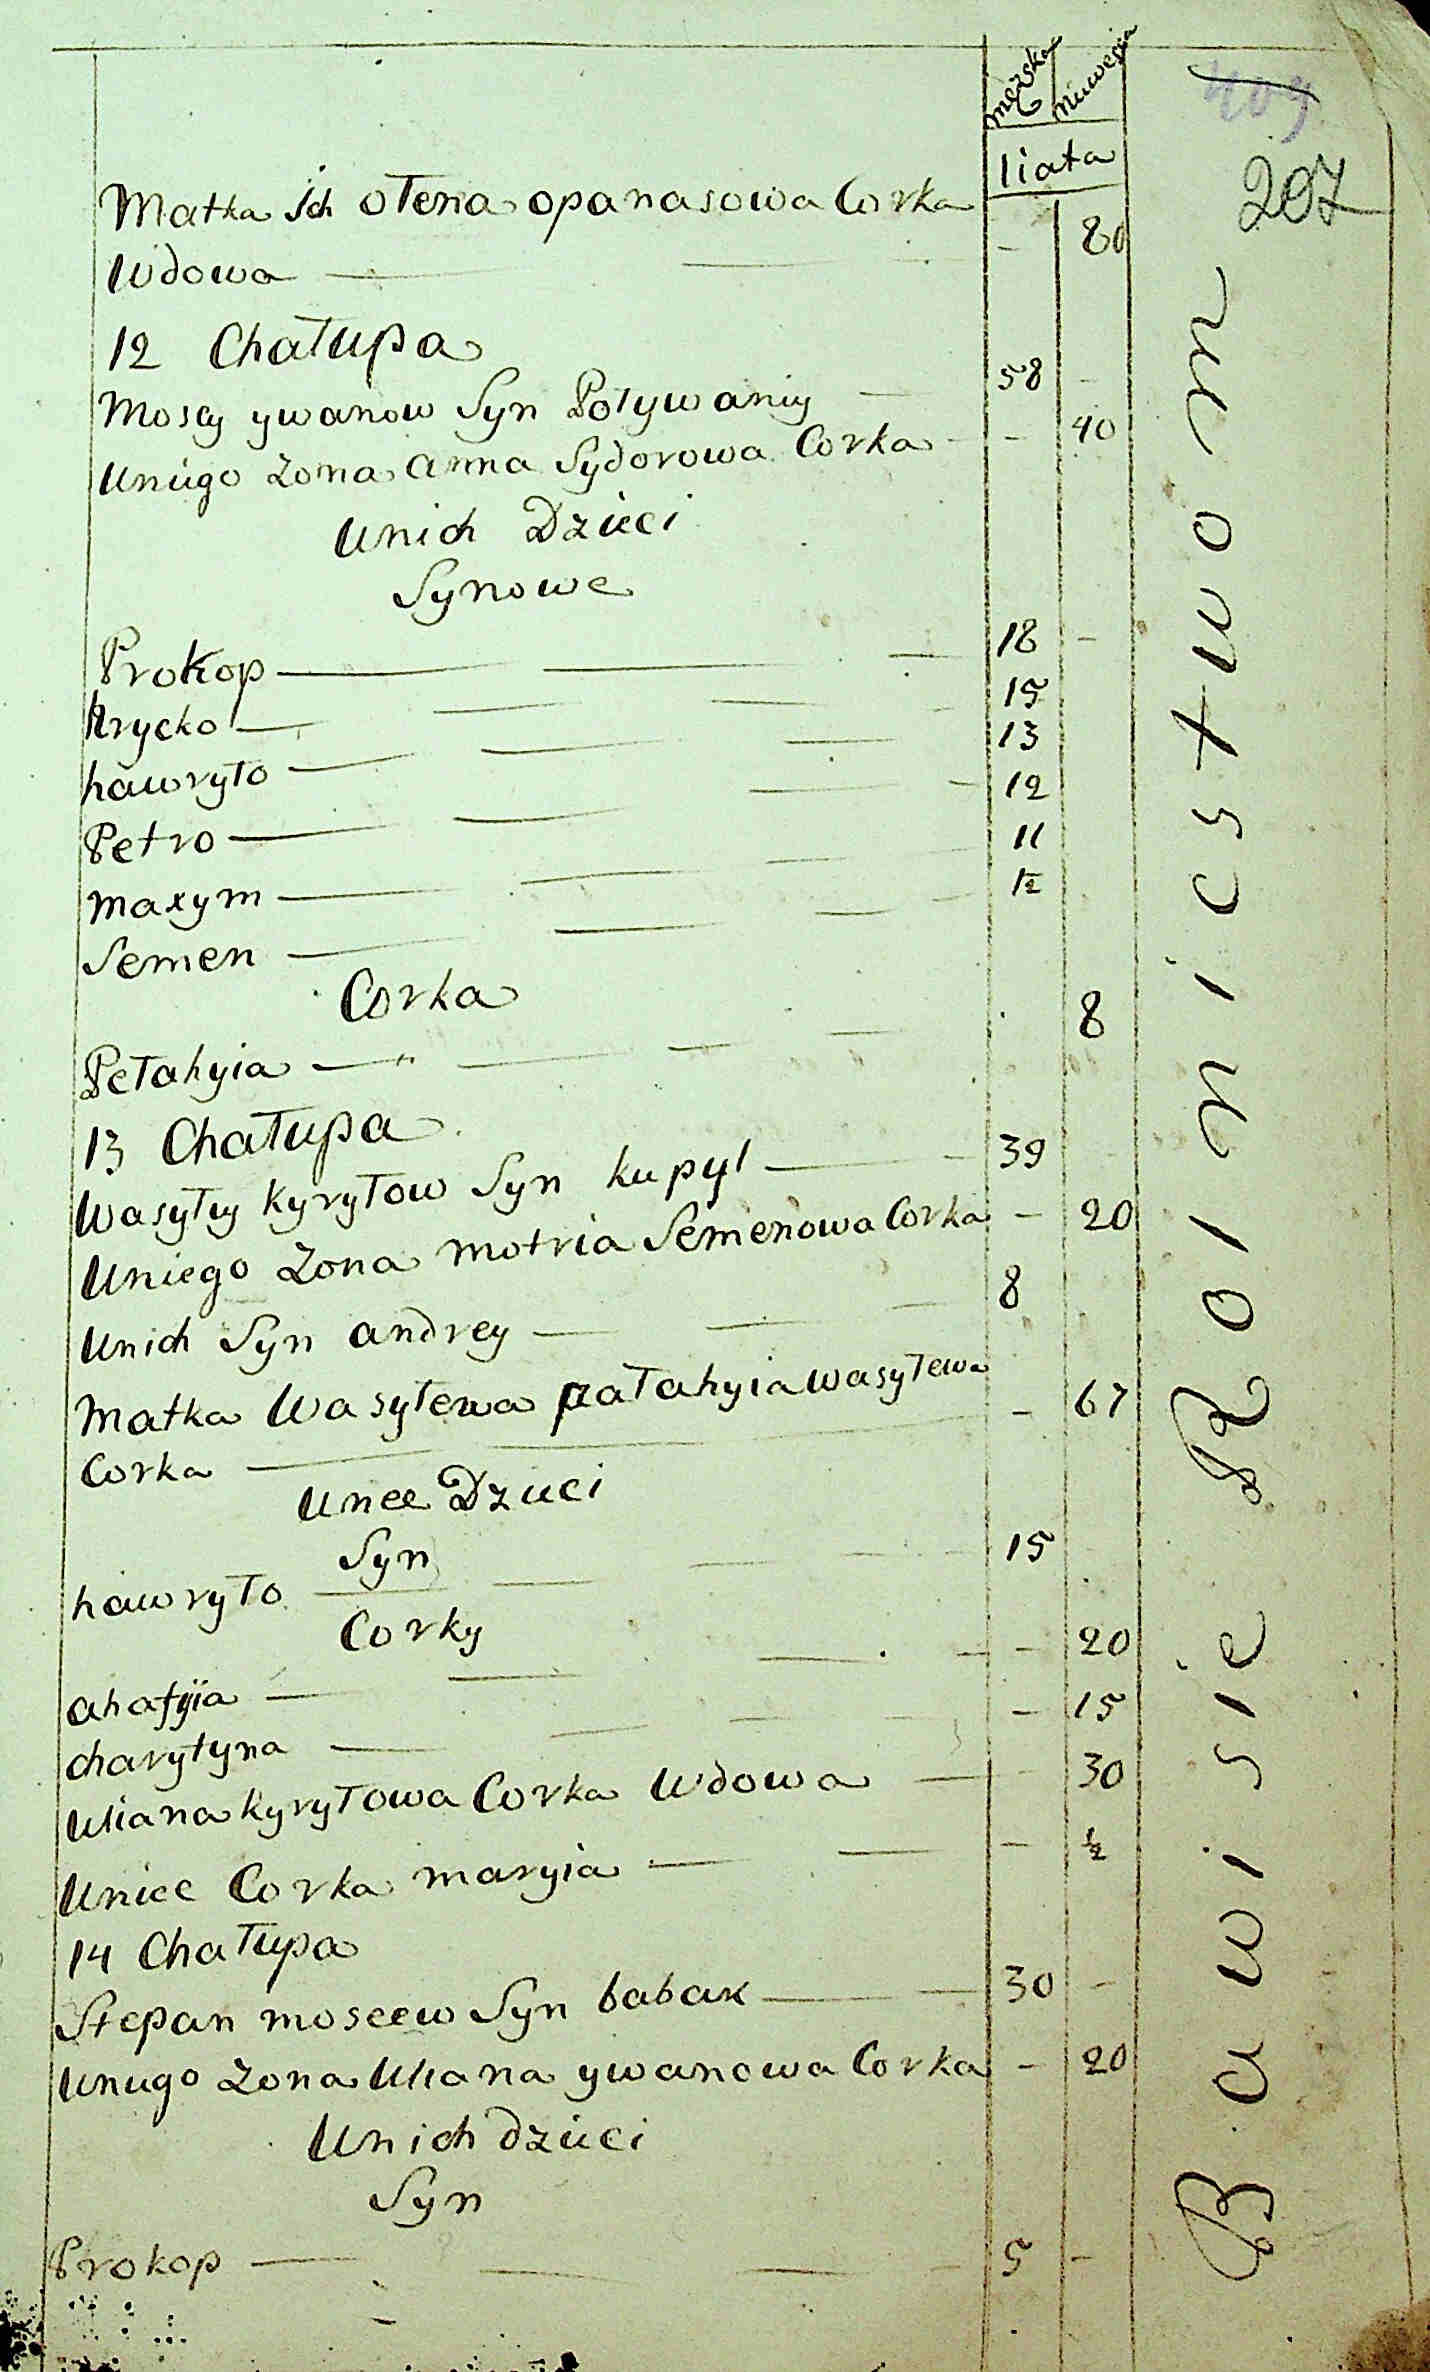 męzska niuwescia
liata
207
Matka ich ołena opanasowa Corka
Wdowa — - 80
12 Chałupa
Mosey ywanow Syn Poływaniy — 58 -
Uniego zona anna Sydorowa Corka - - 40
Unich Dzieci
Synowe
Prokop — 18 -
hrycko — 15
hawryło — 13
Petro — 12
maxym — 11
Semen — ½
Corka
Pełahyia — 8
13 Chałupa
Wasyły kyryłow Syn kupyl — 39
Uniego zona motria Semenowa Corka - 20
Unich Syn andrey — 8
Matka Wasylewa pałahyia wasyłewa
Corka — - 67
Unee Dzieci
Syn
hawryło — 15
Corky
ahafyia — - 20
charytyna — - 15
Uliana kyryłowa Corka Wdowa — - 30
Uniee Corka maryia — - ½
14 Chałupa
Stepan moseew Syn babak — 30 -
Uniego zona Uliana ywanowa Corka - 20
Unich dzieci
Syn
Prokop — 5 -
Bawi sie Rolnicstwom